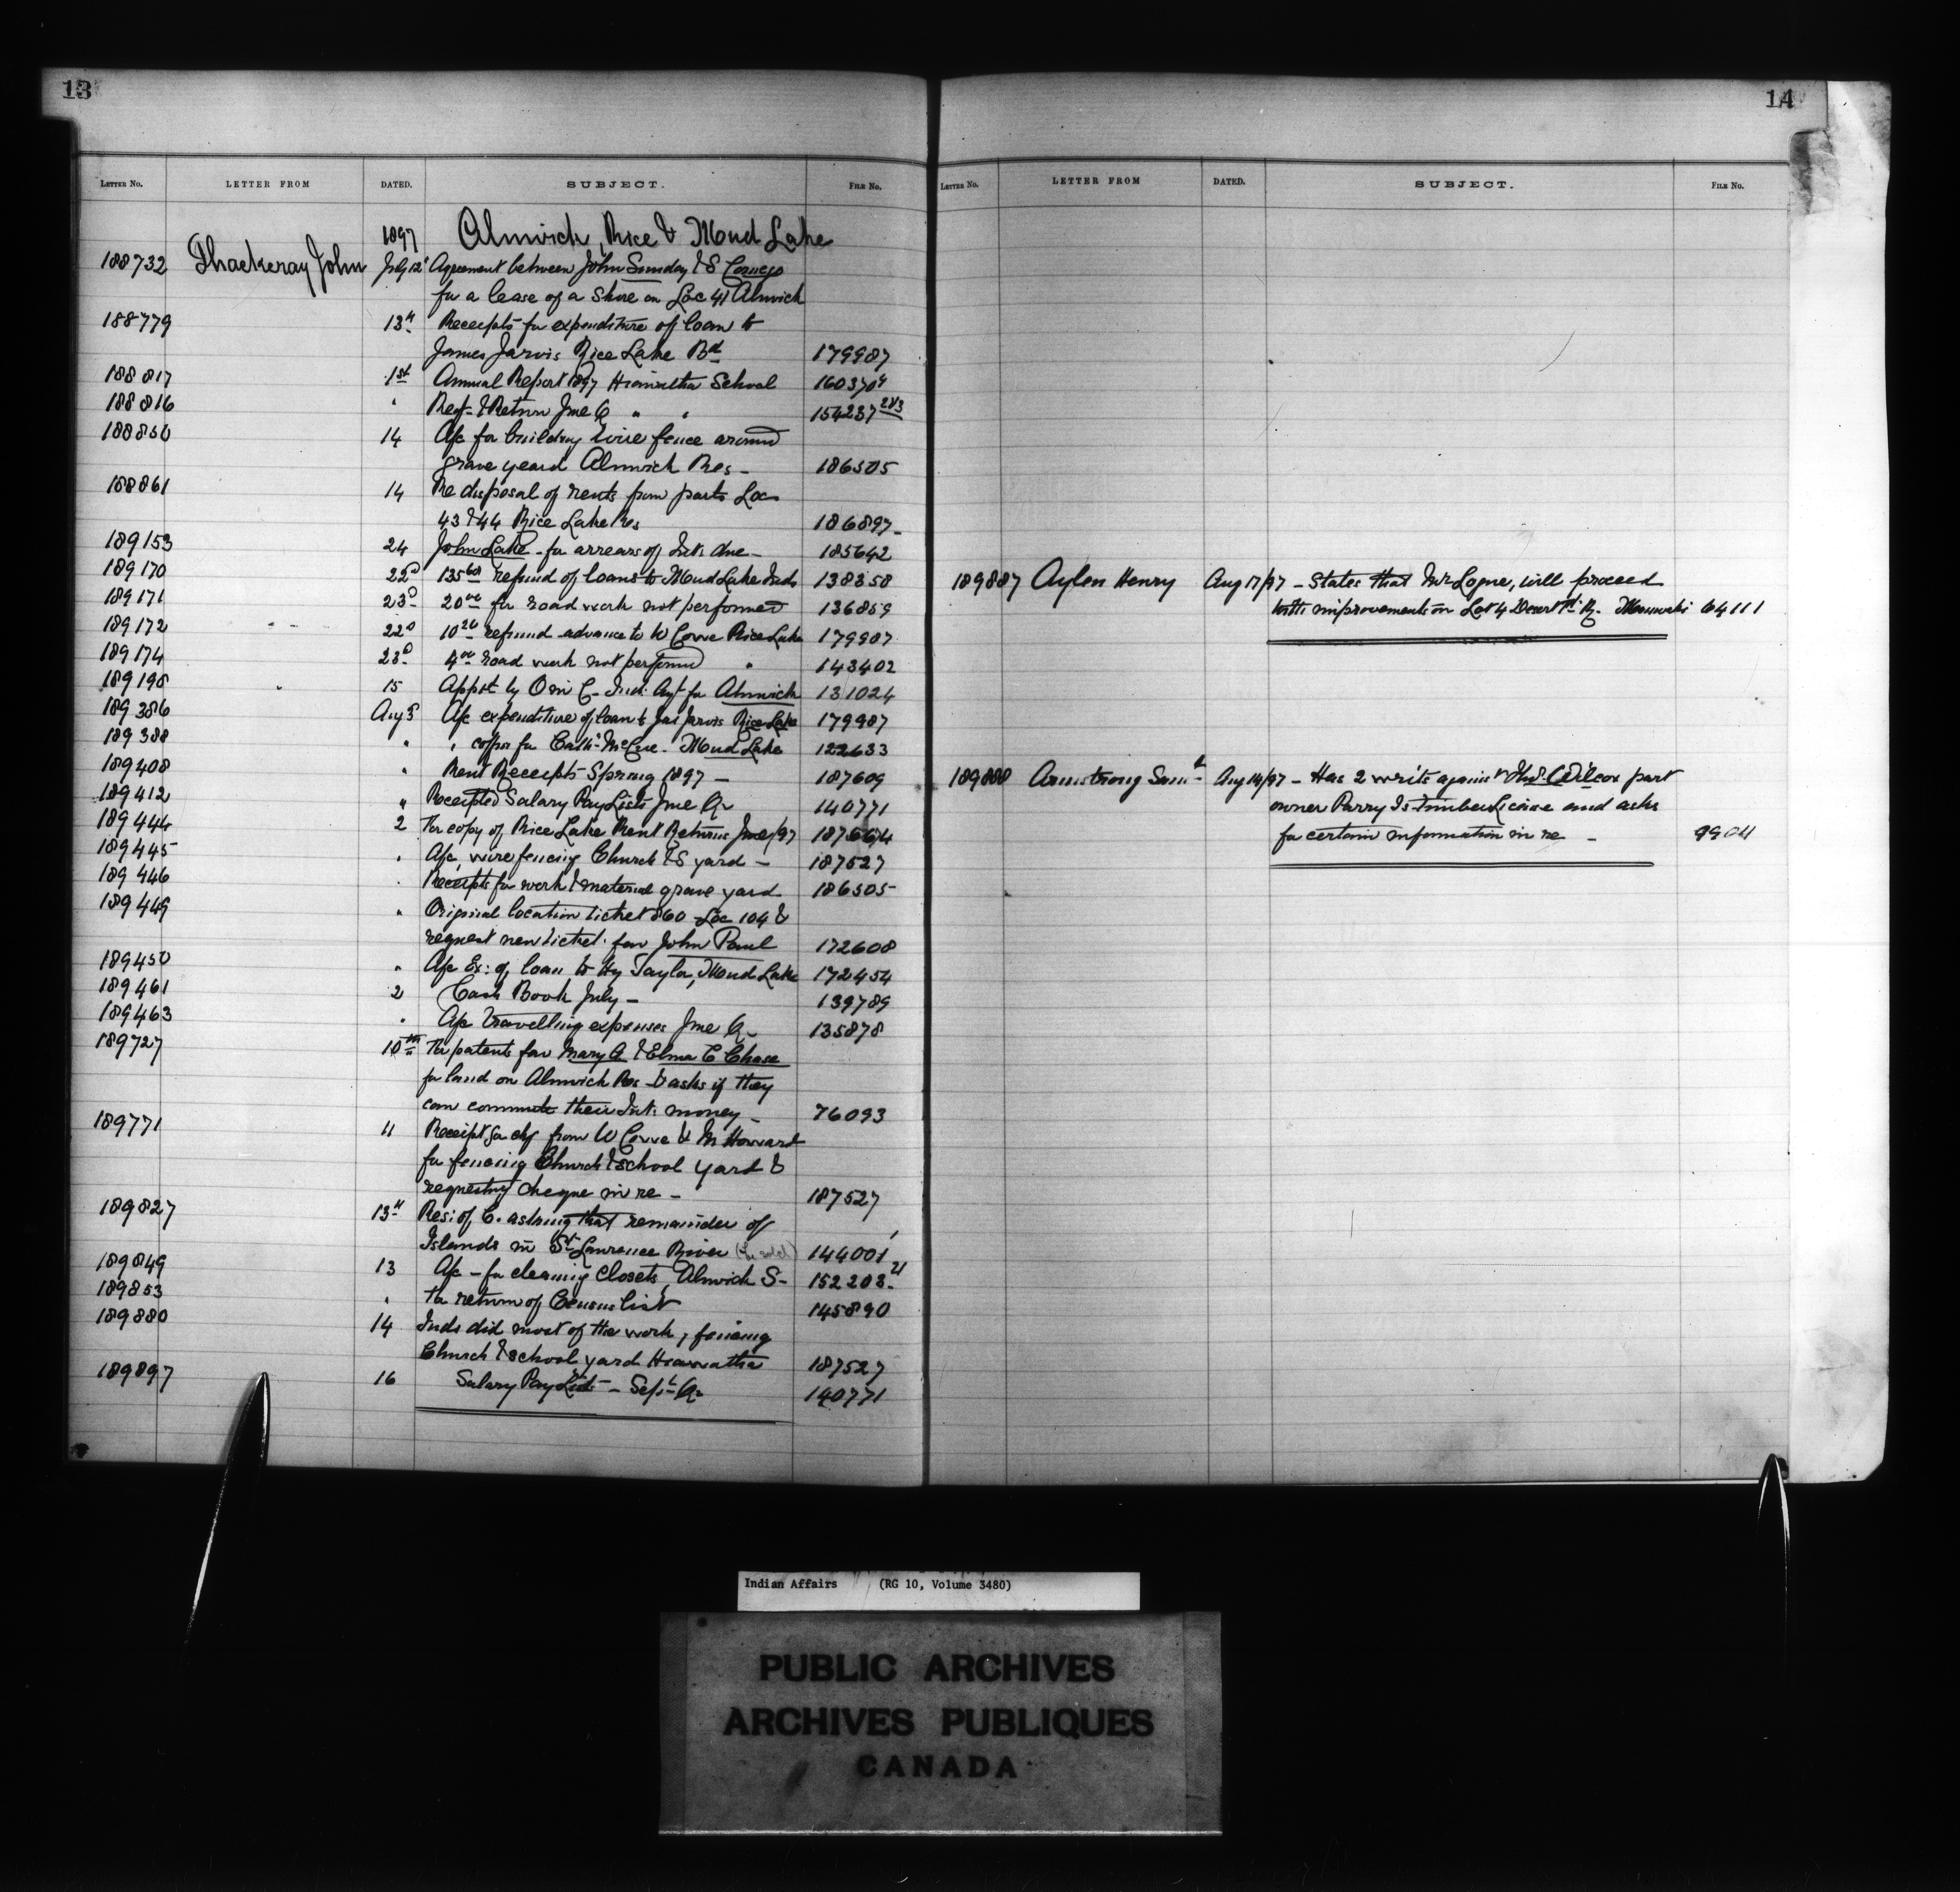 13
LETTER No. LETTER FROM DATED. SUBJECT. FILE No.
1897 Alnwick, Rice & Mud Lake
188732 Thackeray John July 12" Agreement between John Sunday & S Comego
for a lease of a Store on Loc 41 Alnwick
188779 13" Receipts for expenditure of loan to
James Jarvis Rice Lake Bd 179987
188817 1st Annual Report 1897 Hiawatha School 160370 4
188816 " Reqt & Return Jne Q " " 154237 2&3
188850 14 A/c for building wire fence around
grave yeard Alnwick Res - 186505
188861 14 Re disposal of rents from parts Locs
43 & 44 Rice Lake Res 186897 -
189153 24 John Lake - for arrears of Int: due - 185642
189170 22d 135 60 refund of loans to Mud Lake Inds 138358
189171 23d 20 00 for road work not performed 136859
189172 22d 10 26 refund advance to W Cowe Rice Lake 179987
189174 23d 4 00 road work not performed " 143402
189198 15 Appot by O in C - Ind: Agt for Alnwick 131024
189386 Aug 5 A/c expenditure of loan to Jas Jarvis Rice Lake 179987
189388 " " coffin for Cath: McCue - Mud Lake 122633
189408 " Rent Receipts Spring 1897 - 187609
189412 " Receipted Salary Pay Lists Jne Qr 140771
189444 2 For copy of Rice Lake Rent Returns June/97 187664
189445 " A/c wire fencing Church & S yard - 187527
189446 " Receipts for work & material grave yard 186505
189449 " Original location ticket 860 Loc 104 &
request new ticket for John Paul 172608
189450 " A/c Ex: of loan to Hy Taylor, Mud Lake 172454
189461 2 Cash Book July - 139789
189463 " A/c Travelling expenses Jne Qr 135878
189727 10th For patents for Mary A & Elma C Chase
for land on Alnwick Res - & asks if they
can commute their Int: money - 76093
189771 11 Receipt for chq from W Cowe & M Howard
for fencing Church & school yard &
requesting cheque in re - 187527
189827 13" Res: of C. asking that remainder of
Islands in St Lawrence River (be sold) 144001 1
189849 13 A/c - for cleaning closets, Alnwick S - 152203 - 21
189853 " For return of Census list 145890
189880 14 Inds did most of the work, fencing
Church & school yard Hiawatha 187527
189897 16 Salary Pay Lists - Sept Qr 140771
14
LETTER No. LETTER FROM DATED. SUBJECT. FILE No.
189887 Aylen Henry Aug 17/97 - States that Mr Logue, will proceed
with improvements on Lot 4 Desert Ft R. Maniwaki 64111
189888 Armstrong Saml Aug 14/97 - Has 2 writs against Thos. C Wilcox part
owner Parry Is Timber Licence and asks
for certain information in re - 9904
Indian Affairs (RG 10, Volume 3480)
PUBLIC ARCHIVES
ARCHIVES PUBLIQUES
CANADA